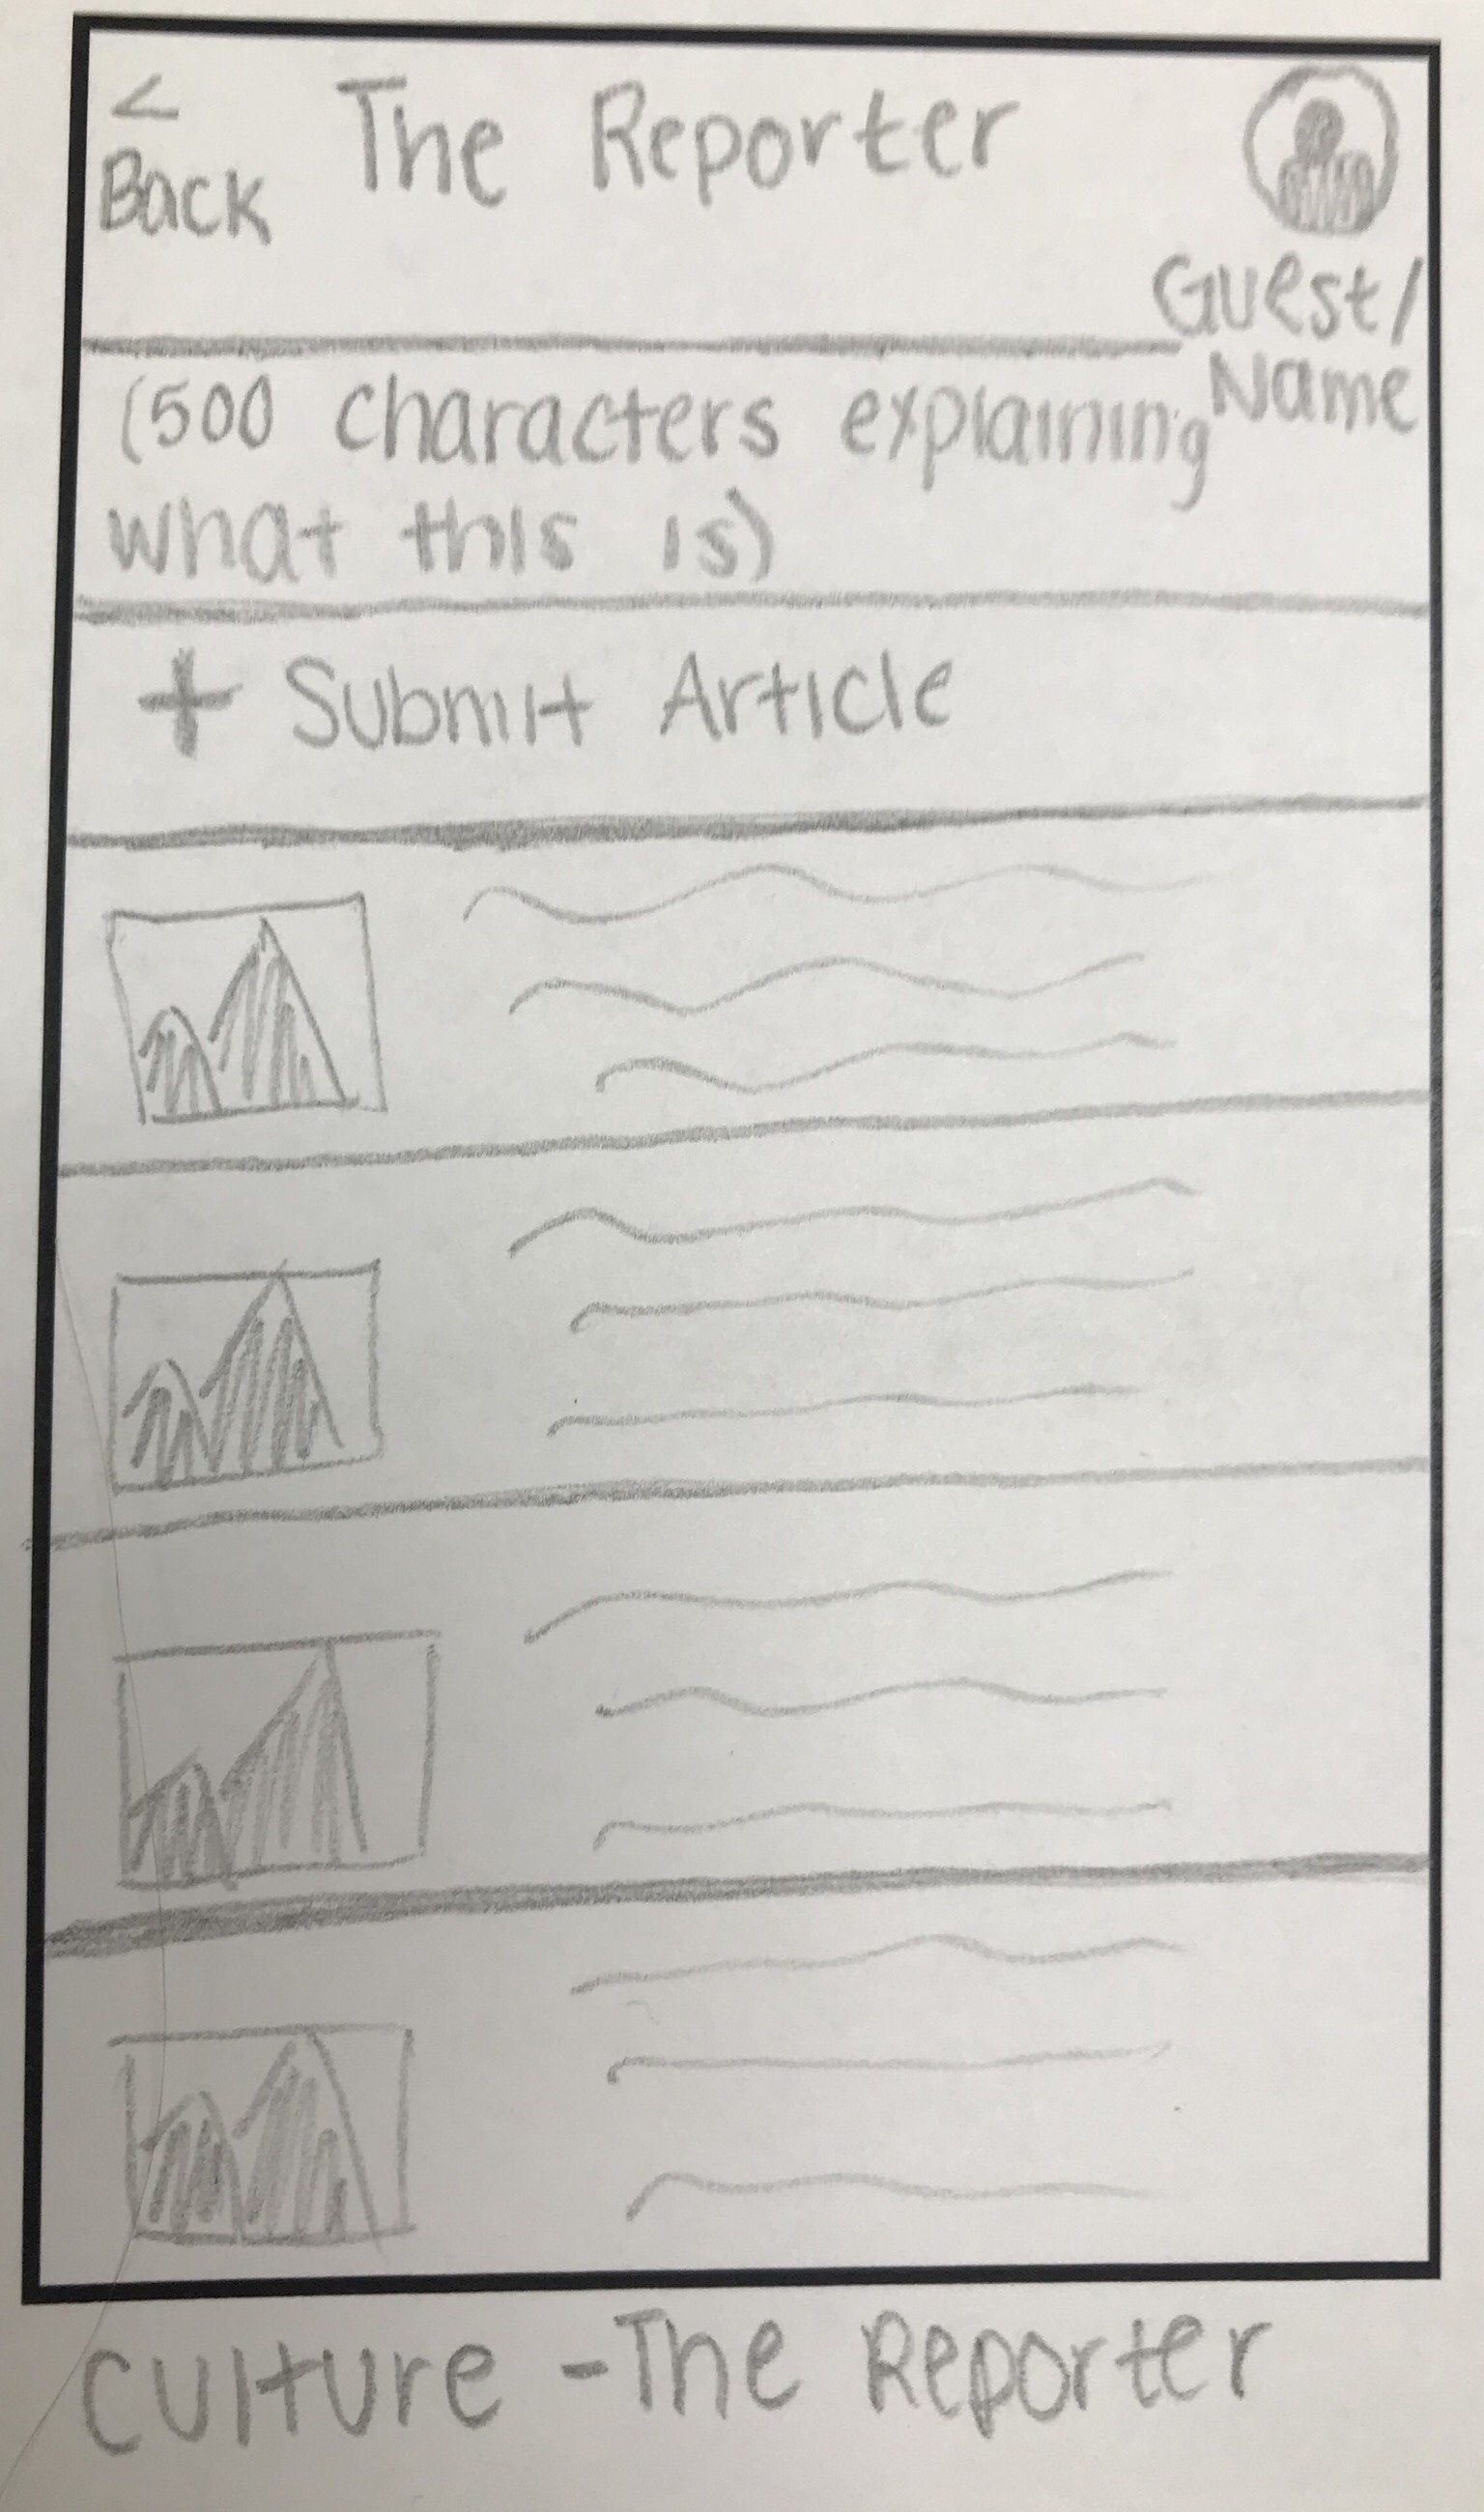 <
Back
The Reporter
Guest/
Name
(500 characters explaining
what this is)
+ Submit Article
Culture - The Reporter